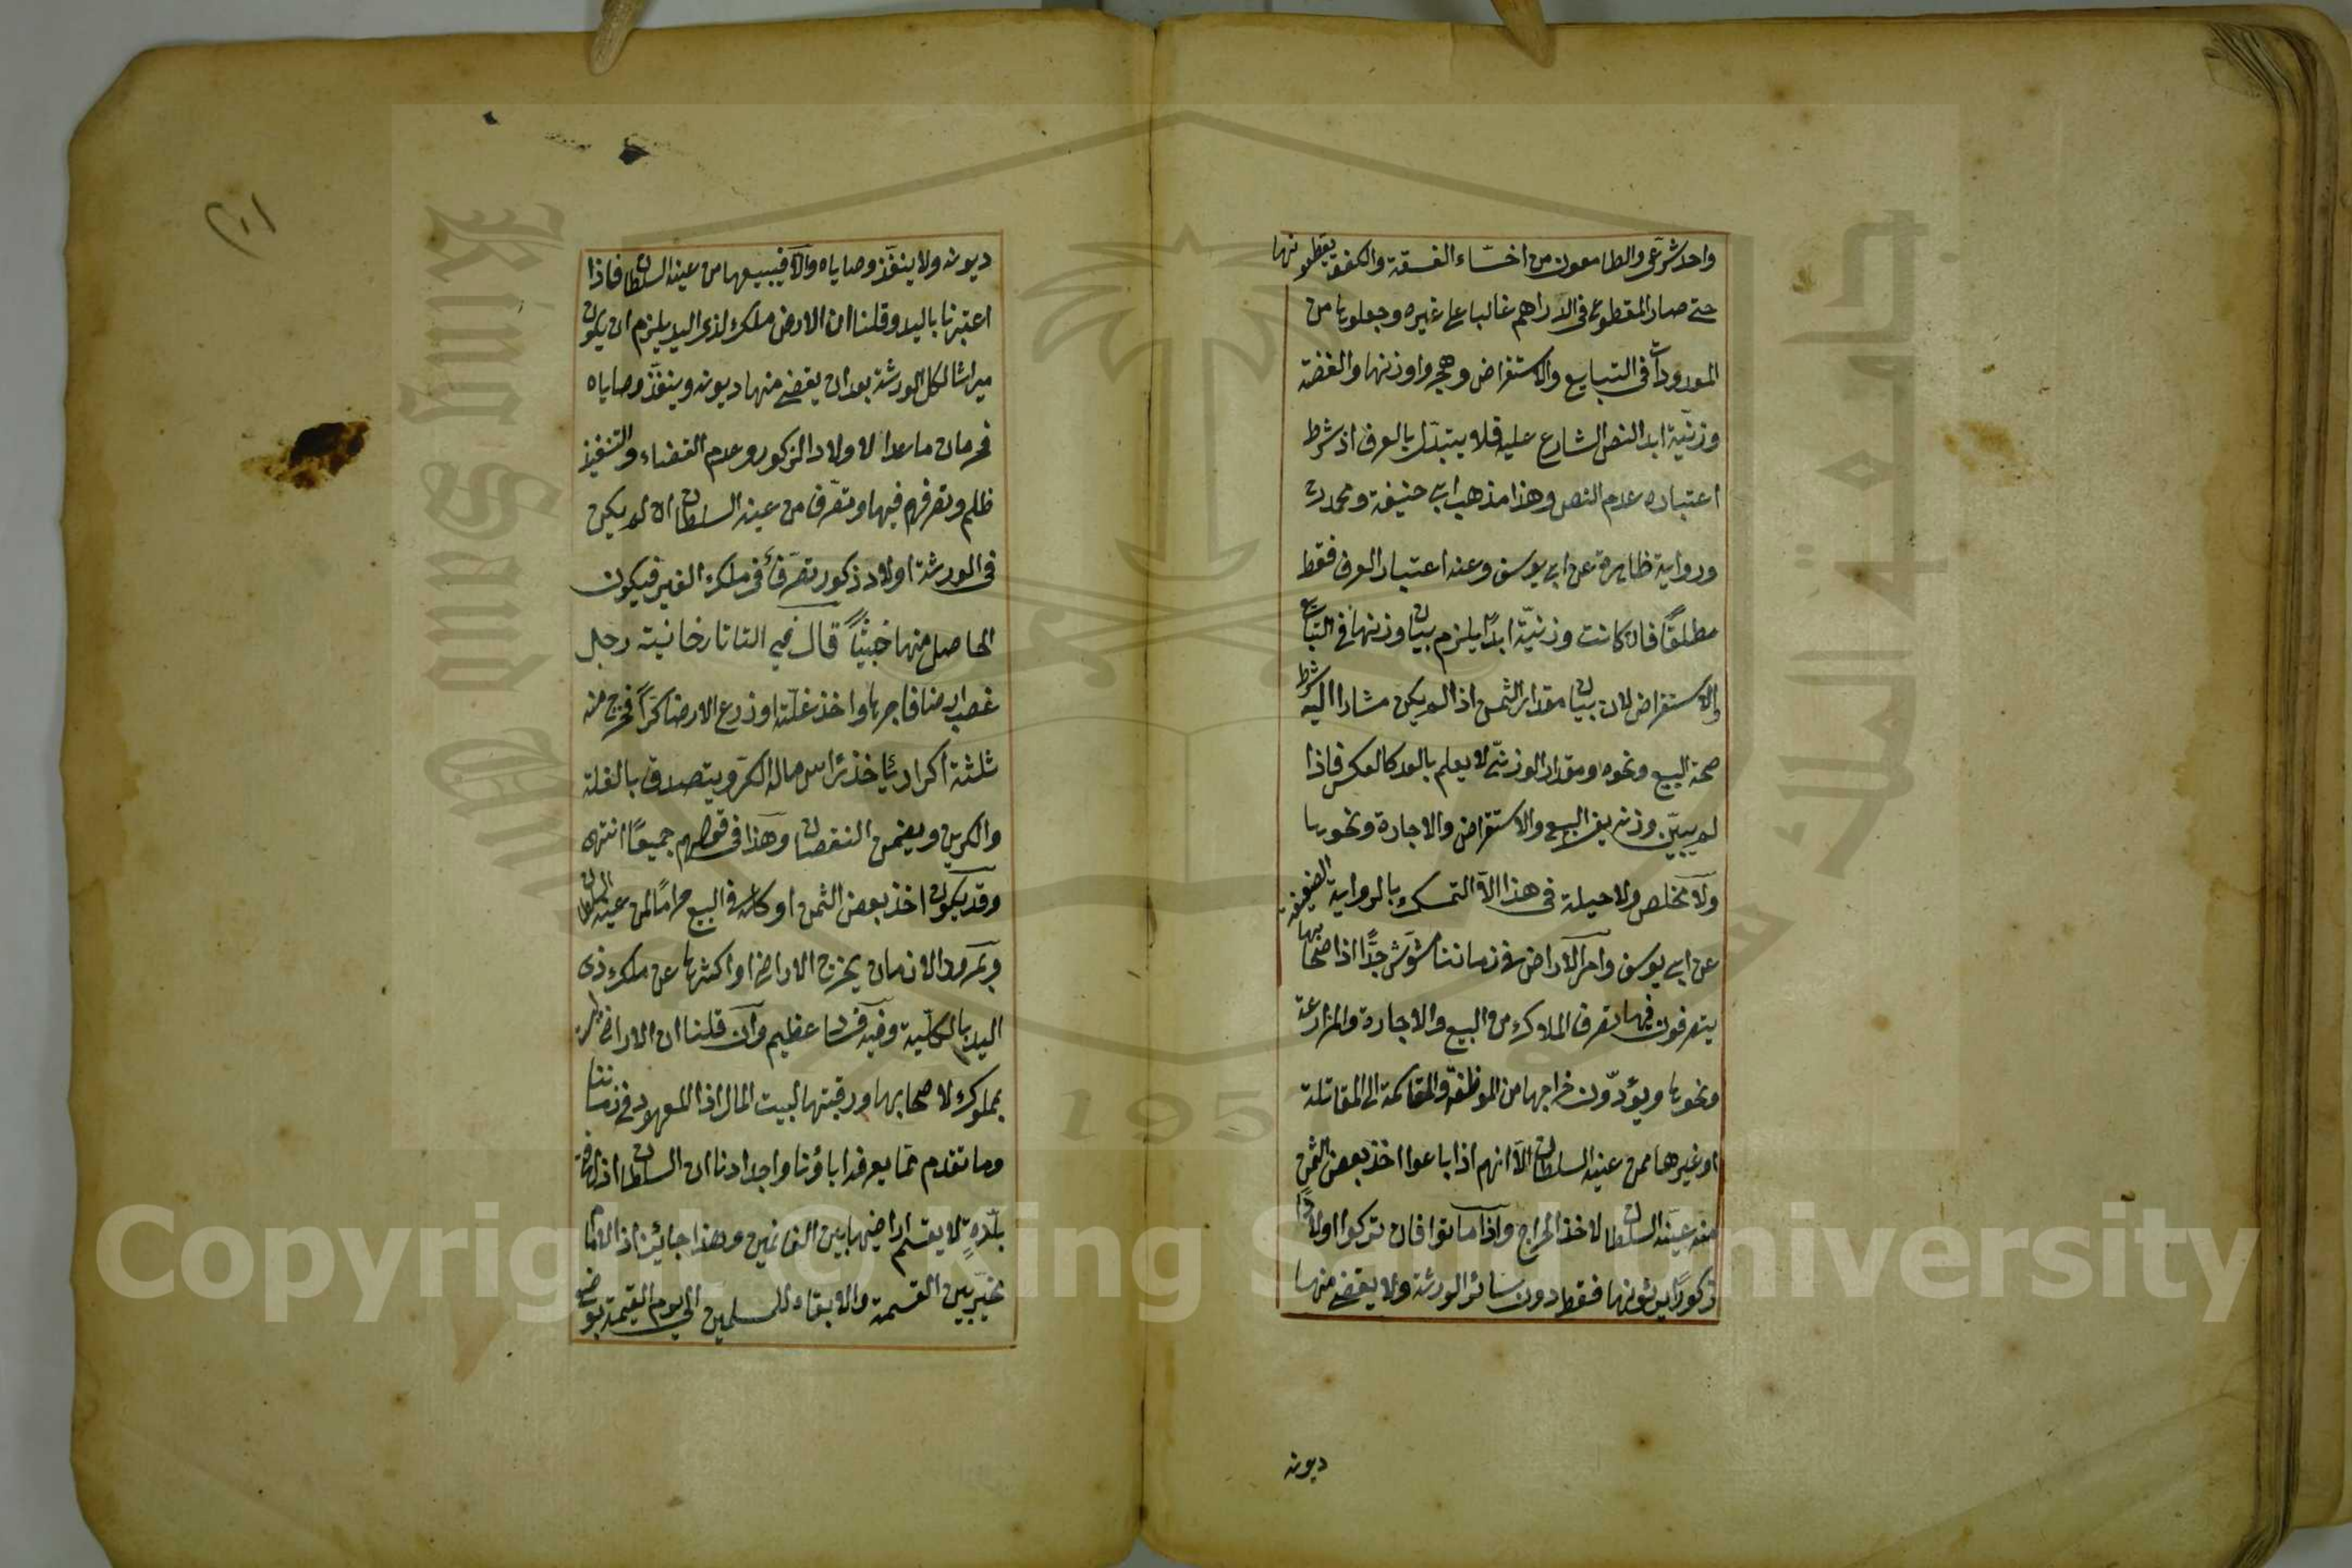 واحد شرعى والطامعون من اخسّاء الفسقة والكفرة يقطعونها
حتى صار المقطوع فى الدراهم غالبا على غيره وجعلوها من
المعدودات فى التبايع والاستقراض وهجروا وزنها والفضة
وزنيّة ابدا لنص الشارع عليه فلا يتبدّل بالعرف اذ شرط
اعتباره عدم النص وهذا مذهب ابى حنيفة ومحمد
ورواية ظاهرة عن ابى يوسف وعنه اعتبار العرف فقط
مطلقًا فان كانت وزنيّة ابدًا يلزم بيان وزنها فى التبايع
والاستقراض لان بيان مقدار الثمن اذا لم يكن مشارا اليه شرط
صحة البيع ونحوه ومقدار الوزنى لا يعلم بالعد كالعكس فاذا
لم يبيّن وزنه يفسد البيع والاستقراض والاجارة ونحوها
ولا مخلص ولا حيلة فى هذا الّا التمسك بالرواية الضعيفة
عن ابى يوسف وامر الاراضى فى زماننا مشوّش جدًّا اذ اصحابها
يتصرفون فيها تصرف الملاك من البيع والاجارة والمزارعة
ونحوها ويؤدّون خراجها من الموظفة والمقاسمة الى المقاتلة
او غيرها ممن عينه السلطان الّا انهم اذا باعوا اخذ بعض الثمن
منه عينه السلطان لاخذ الخراج واذا ماتوا فان تركوا اولادًا
ذكورًا يرثونها فقط دون سائر الورثة ولا يقضى منها
ديونه
ديونه ولا ينفّذ وصاياه والّا فيبيعها من عينه السلطان فاذا
اعتبرنا باليد وقلنا ان الارض ملك لذى اليد يلزم ان يكون
ميراثا لكل الورثة بعد ان يقضى منها ديونه وينفّذ وصاياه
فحرمان ما عدا الاولاد الذكور وعدم القضاء والتنفيذ
ظلم وتصرفهم فيها وتصرّف من عينه السلطان ان لم يكن
فى الورثة اولاد ذكور تصرّفًا فى ملك الغير فيكون
الحاصل منها خبيثًا قال فى التاتارخانية رجل
غصب ارضا فاجرها واخذ غلتها او زرع الارض كرًا فخرج منه
ثلثة اكرار يأخذ رأس ماله الكرّ ويتصدق بالغلة
والكرين ويضمن النقصان وهذا فى قولهم جميعًا انتهى
وقد يكون اخذ بعض الثمن او كله فى البيع حرامًا لمن عينه السلطان
وبمرور الازمان يخرج الاراضى او اكثرها عن ملك ذى
اليد بالكلية وفيه فساد عظيم وان قلنا ان الاراضى ليست
بمملوكة لاصحابها ورقبتها لبيت المال اذ المعهود فى زماننا
وما تقدم مما يعرفه اباؤنا واجدادنا ان السلطان اذا فتح
بلدةٍ لا يقسم اراضيها بين الغانمين وهذا جائز اذ الامام
مخير بين القسمة والابقاء للمسلمين الى يوم القيمة بوضع